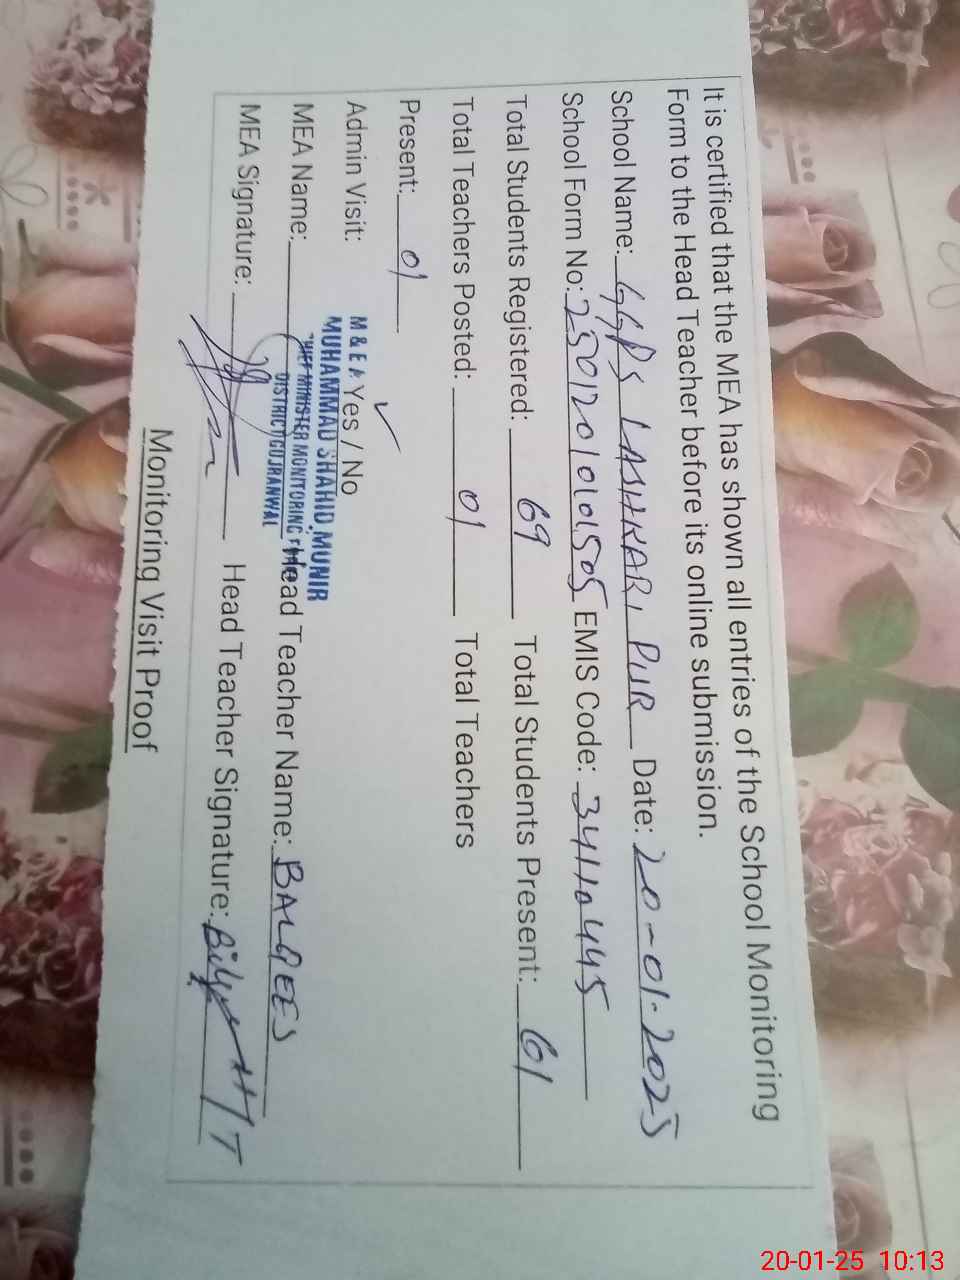 It is certified that the MEA has shown all entries of the School Monitoring
Form to the Head Teacher before its online submission.
School Name: GGPS LASHKARI PUR Date: 20-01-2025
School Form No: EMIS Code: 34110445
Total Students Registered: 69 Total Students Present: 61
Total Teachers Posted: 01 Total Teachers
Present: 01
Admin Visit: Yes / No
M & EA
MUHAMMAD SHAHID MUNIR
CHIEF MINISTER MONITORING
DISTRICT GUJRANWAL
MEA Name: Head Teacher Name: BALQEES
MEA Signature: Head Teacher Signature:
Monitoring Visit Proof
20-01-25 10:13